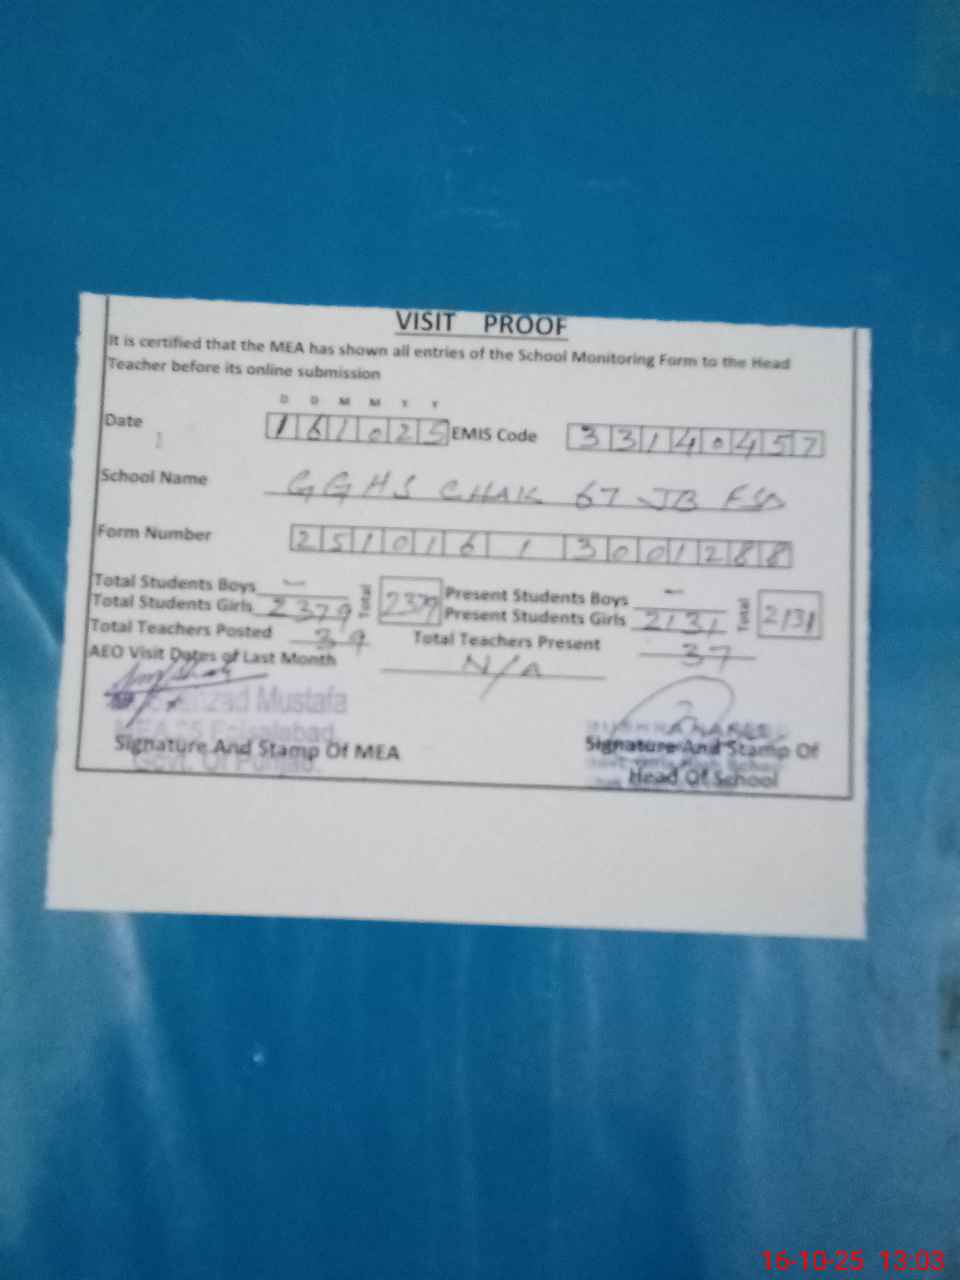 VISIT PROOF
It is certified that the MEA has shown all entries of the School Monitoring Form to the Head
Teacher before its online submission
D D M M Y Y
Date 161025 EMIS Code 33140457
School Name GGHS CHAK 67 JB FSD
Form Number 25101613001288
Total Students Boys - Total 2379 Present Students Boys - Total 2131
Total Students Girls 2379 Present Students Girls 2131
Total Teachers Posted 39 Total Teachers Present 37
AEO Visit Dates of Last Month N/A
Mustafa
Faisalabad
Govt. Of Punjab.
Signature And Stamp Of MEA
Signature And Stamp Of
Head Of School
16-10-25 13:03